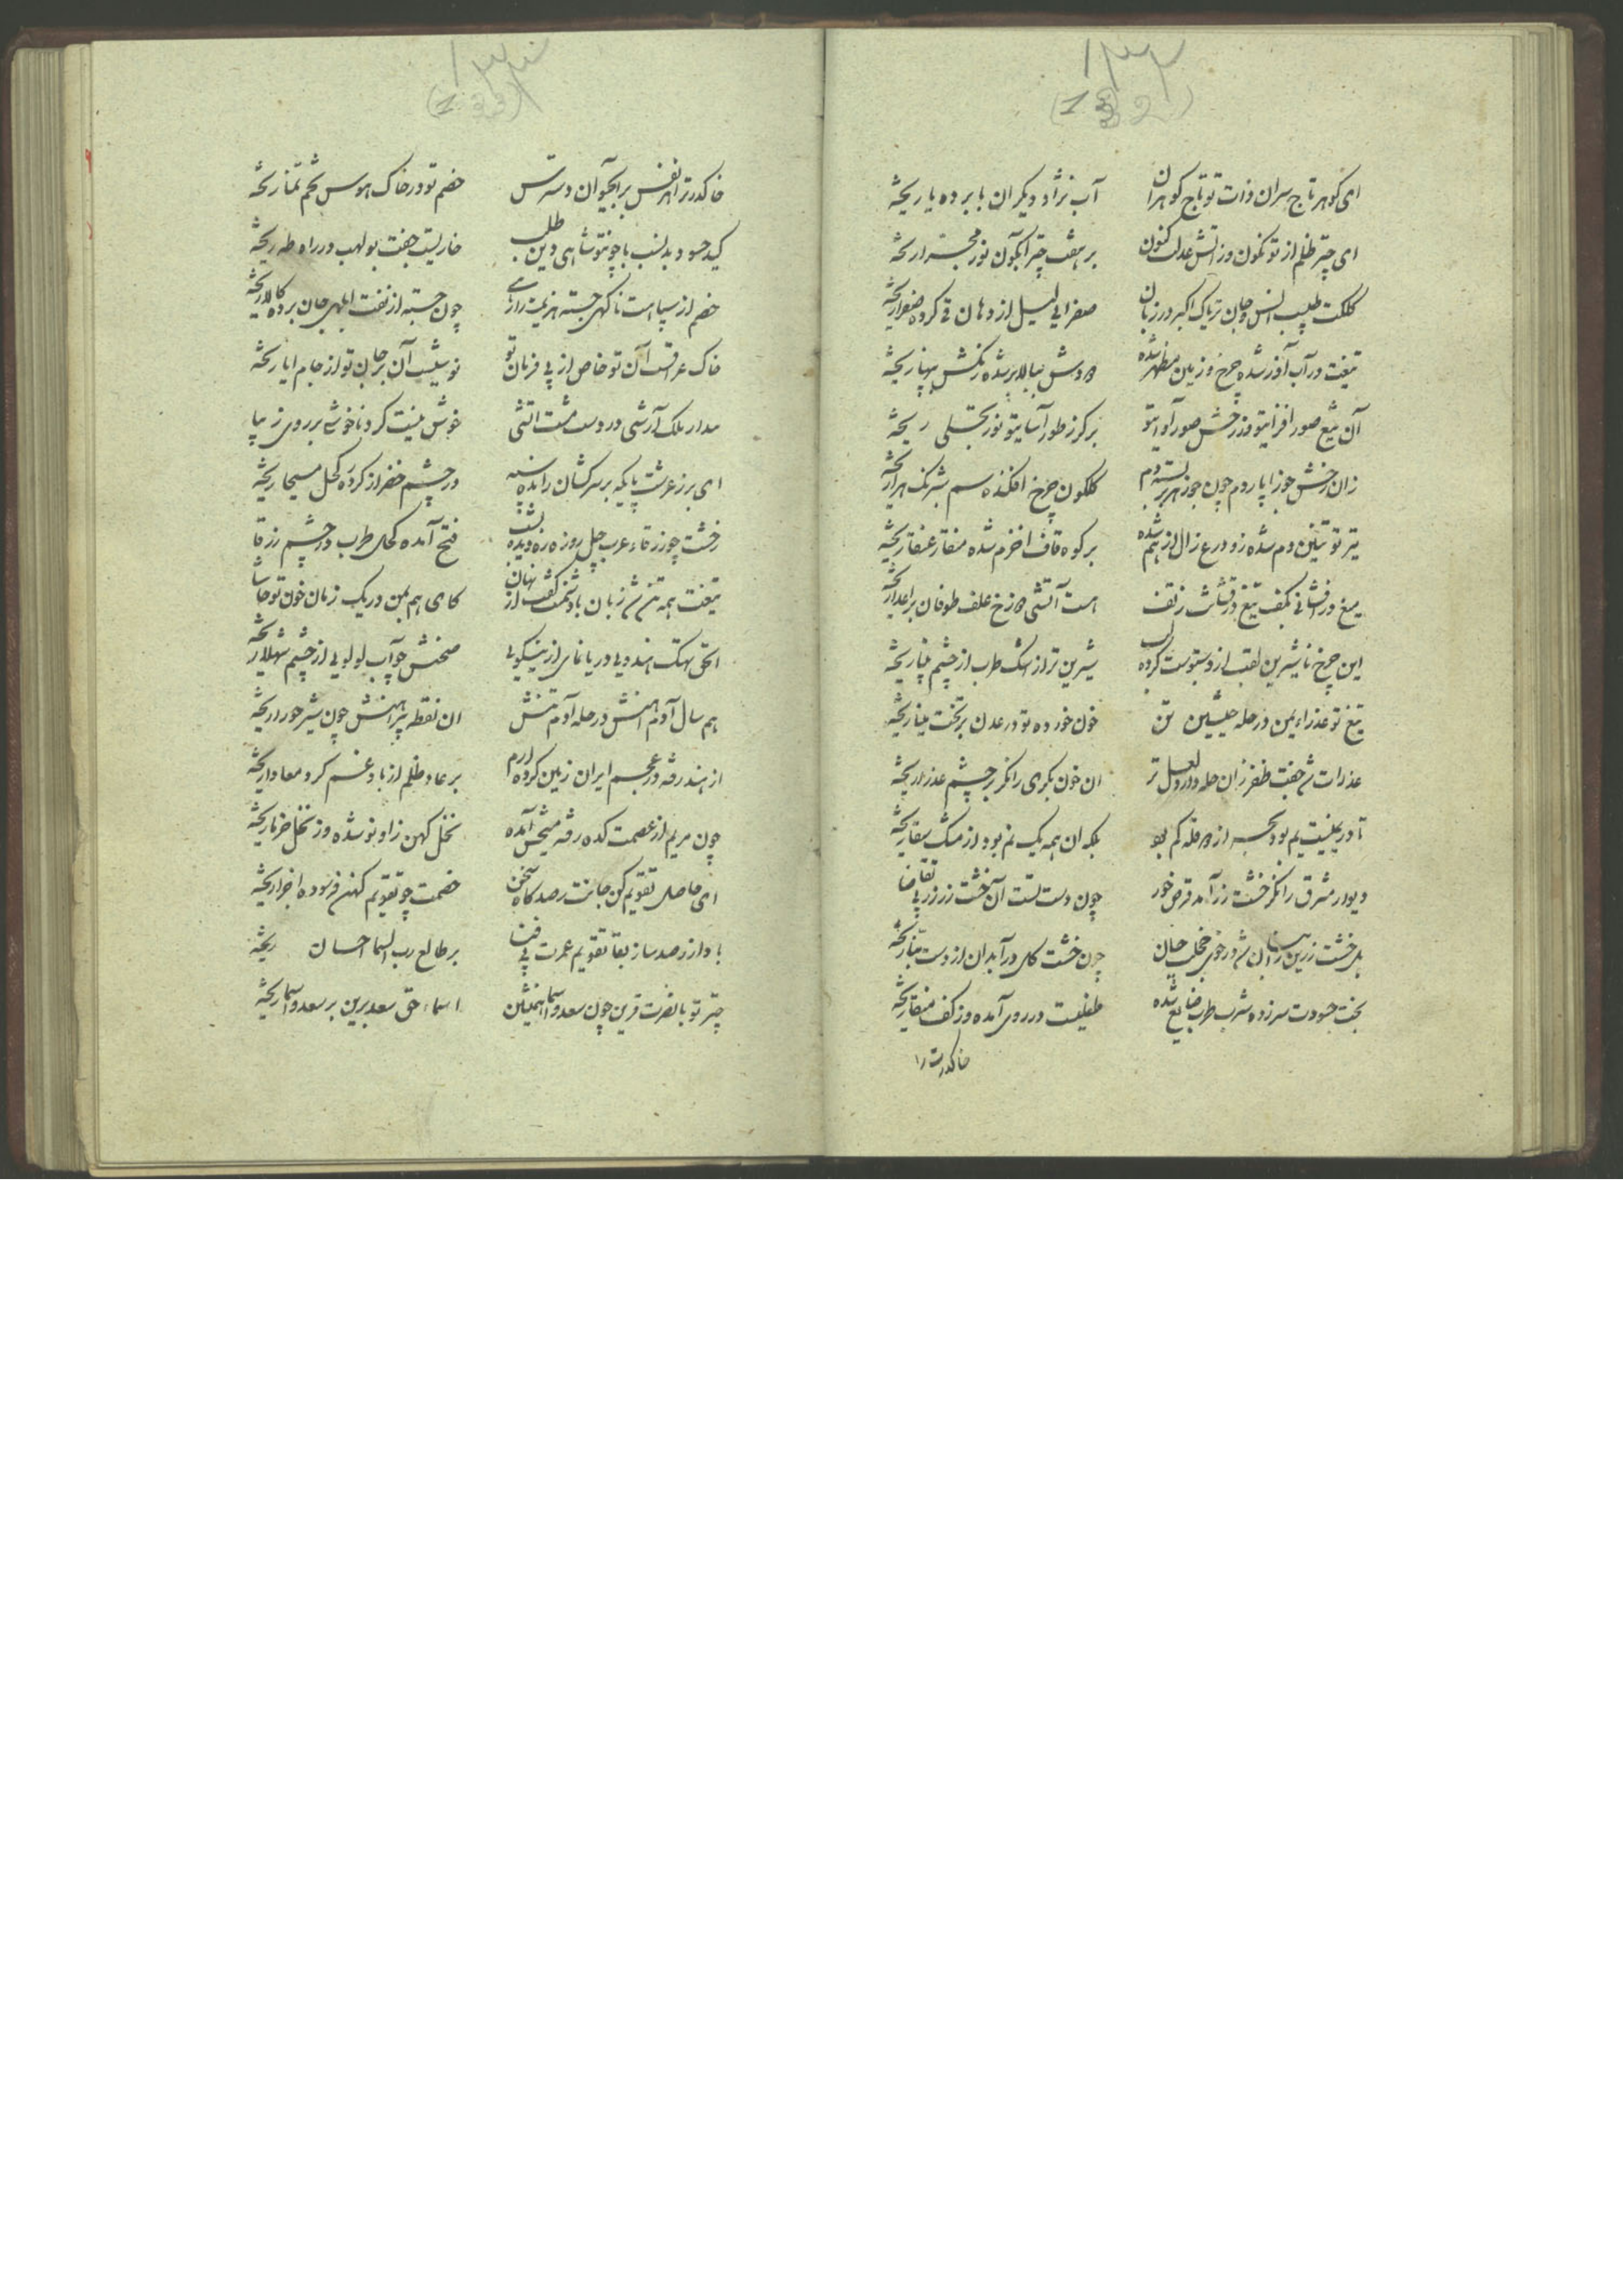 ۱۳۲
(132)
ای کوهر تاج سران ذات تو تاج کوهران آب نژاد دیکران بابرده یا ریخته
ای چتر ظلم از تو نکون وز آتش عدلت کنون بر هفت چتر آبکون نور مجسّر ریخته
کلکت طبیب انس و جان تریاک اکبر در زبان صفرایی لیل از دهان قی کرده صفرا ریخته
تیغت در آب آذر شده چرخ و زمین مظهر شده دودش ببالا بر شده رنکش بپهنا ریخته
آن تیغ صور افزا بتو وز رخش صور آوا بتو بر کرز طور آسا بتو نور تجلی ریخته
زان رخش جوزا پاردم چون جوزهر بربسته دم کلکون چرخ افکنده سم شبرنک هرا ریخته
تیر تو تنین دم شده زو درع زال از هم شده بر کوه قاف اخرم شده منقار عنقا ریخته
میغ درفشانی بکف تیغ درفشانت ز تف هست آتشی دوزخ علف طوفان بر اعدا ریخته
این چرخ ناشیرین لقب از دستبوست کرده لب شیرین تر از اشک طرب از چشم بینا ریخته
تیغ تو عذراء یمن در حله چینیش تن خون خورده تو در عدن بر تخت مینا ریخته
عذرات شد جفت ظفر زان حله دارد لعل تر ان خون بکری را نکر بر چشم عذرا ریخته
تا در یمینت یم بود بحر از دو قله کم بود بلکه ان همه یک نم بود از مشک سقا ریخته
دیو در مشرق را نکر خشت زر آمد قرص خور چون دست تست آن خشت زر زر بی تقاضا ریخته
بل خشت زرین زآسمان شد در خوی خجلت نهان چون خشت کل در آبدان از دست بنا ریخته
بخت حسودت سرزده شرب طرب ضایع شده طفلیست در روی آمده وز کف منقا ریخته
خاکدرت را
۱۳۳
(133)
خاکدرت را هر نفس بر آبحیوان دسترس خصم تو در خاک هوس تخم تمنا ریخته
کید حسود بدنسب با چون تو شاهی دین طلب خاریست جفت بولهب در راه طه ریخته
خصم از سپاهت ناکهی جسته هزیمت را رهی چون جسته از نفت ابلهی جان برده کالا ریخته
خاک عراقست آن تو خاص از پی فرمان تو نوشیست آن بر جان تو از جام ابا ریخته
مدار ملک آرشی در دست مشت آتشی خوش نیست کرد ناخوشی بر روی زیبا
ای برز عرشت پایکه بر سر کشان رانده سپه در چشم خضر از کرد ره کحل مسیحا ریخته
رخشت چو زرقاء عرب چل روزه ره دیده بشب فتح آمده کحال طرب در چشم زرقا
تیغت همه تن شد زبان با دشمنت کفت از نهان کای هم بمن در یک زمان خون تو حاشا
الحق نهنک هندویی دریا نمای از نیکویی صحنش چو آب لولویی از چشم شهلا ریخته
هم سال آدم آهنش در حله آدم تنش ان نقطه پیراهنش چون شیر حورا ریخته
از هند رفته در عجم ایران زمین کرده ارم بر عاد ظلم از باد غم کرد معادا ریخته
چون مریم از عصمت کده رفته مسیحش آمده نخل کهن زاو نو شده وز نخل خرما ریخته
ای حاصل تقویم کن جانت رصدکاه سخن خصمت چو تقویم کهن فرسوده اجزا ریخته
باد از رصد ساز بقا تقویم عمرت بی فنا بر طالع رب السما احسان ریخته
چتر تو با نصرت قرین چون سعد و اسما همنشین اسماء حق سعد برین بر سعد و اسما ریخته